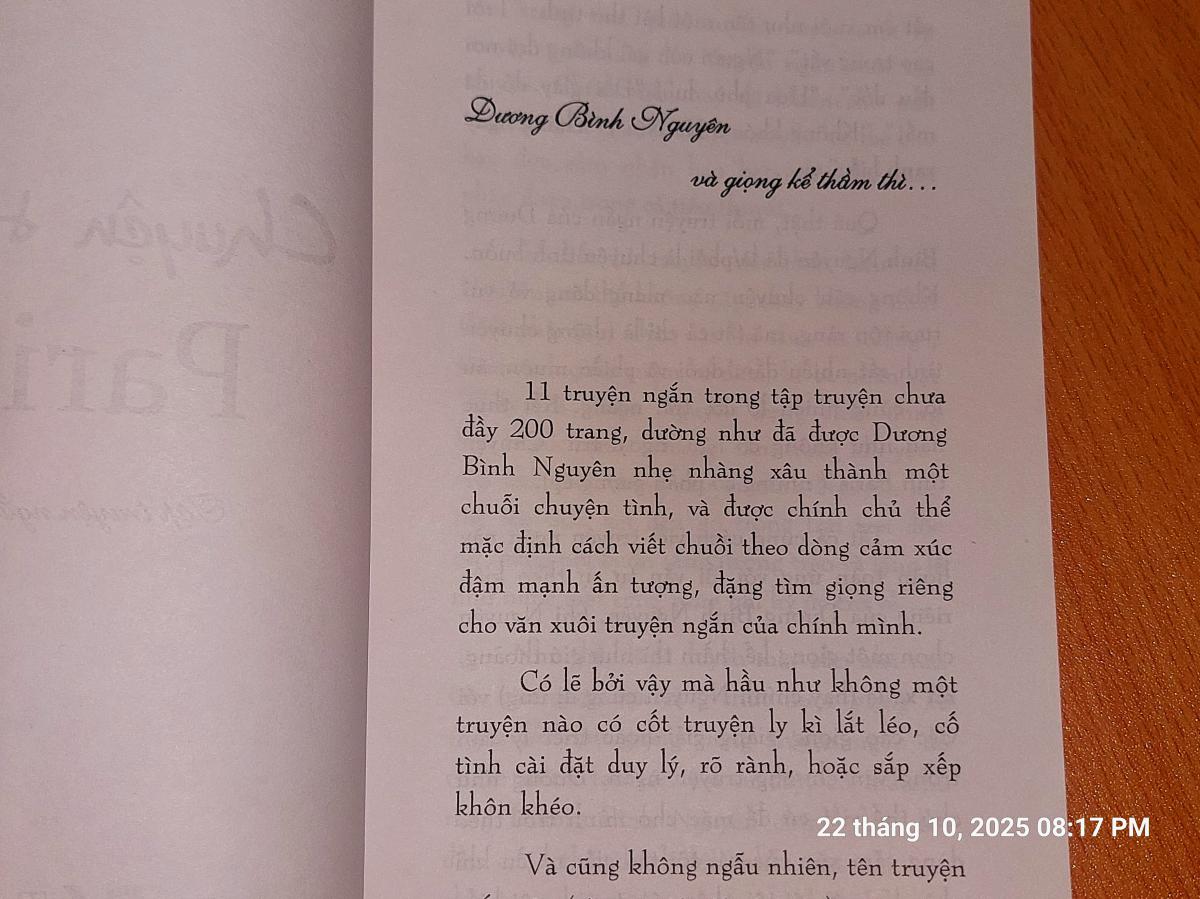 Dương Bình Nguyên
và giọng kể thầm thì...
11 truyện ngắn trong tập truyện chưa
đầy 200 trang, dường như đã được Dương
Bình Nguyên nhẹ nhàng xâu thành một
chuỗi chuyện tình, và được chính chủ thể
mặc định cách viết chuồi theo dòng cảm xúc
đậm mạnh ấn tượng, đặng tìm giọng riêng
cho văn xuôi truyện ngắn của chính mình.
Có lẽ bởi vậy mà hầu như không một
truyện nào có cốt truyện ly kì lắt léo, cố
tình cài đặt duy lý, rõ rành, hoặc sắp xếp
khôn khéo.
Và cũng không ngẫu nhiên, tên truyện
22 tháng 10, 2025 08:17 PM